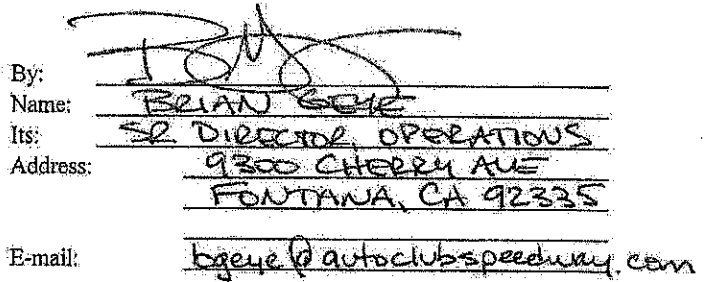 By:
Name: BRIAN GEYE
Its: SR DIRECTOR, OPERATIONS
Address: 9300 CHERRY AVE
FONTANA, CA 92335
E-mail: bgeye@autoclubspeedway.com